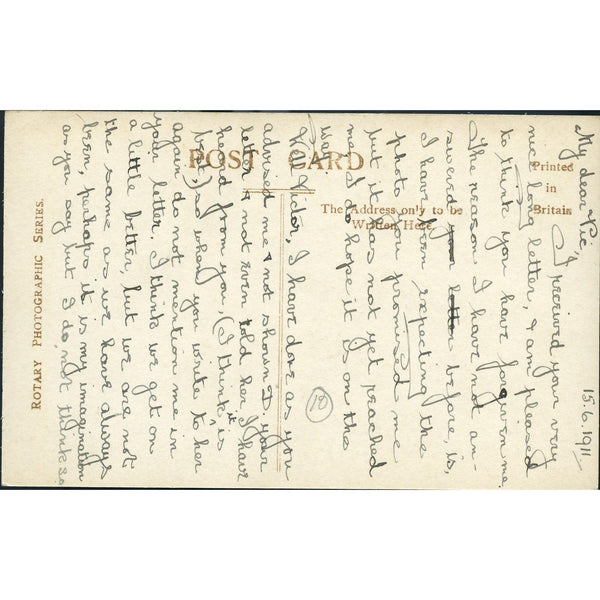 POST CARD
Printed
in
Britain
The Address only to be
Written Here.
ROTARY PHOTOGRAPHIC SERIES.
15.6.1911
My dear Vic,
I received your very
nice long letter, & am pleased
to think you have forgiven me.
The reason I have not an-
swered your letter before, is,
I have been expecting the
photo you promised me
but it has not yet reached
me. I do hope it is on the
way.
Well Victor, I have done as you
advised me & not shown I your
letter & not even told her, I have
heard from you, (I think it is
best,) so when you write to her
again do not mention me in
your letter. I think we get on
a little better, but we are not
the same as we have always
been, perhaps it is my imagination
as you say but I do not think so
10